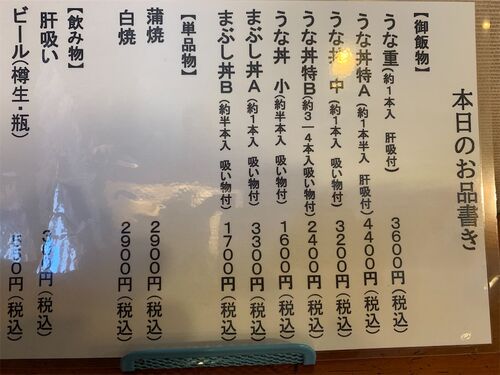 本日のお品書き
【御飯物】
うな重(約1本入 肝吸付) 3600円(税込)
うな丼特A(約1本半入 肝吸付) 4400円(税込)
うな丼 中(約1本入 吸い物付) 3200円(税込)
うな丼特B(約3―4本入吸い物付) 2400円(税込)
うな丼 小(約半本入 吸い物付) 1600円(税込)
まぶし丼A(約1本入 吸い物付) 3300円(税込)
まぶし丼B(約半本入 吸い物付) 1700円(税込)
【単品物】
蒲焼 2900円(税込)
白焼 2900円(税込)
【飲み物】
肝吸い 円(税込)
ビール(樽生・瓶) 550円(税込)